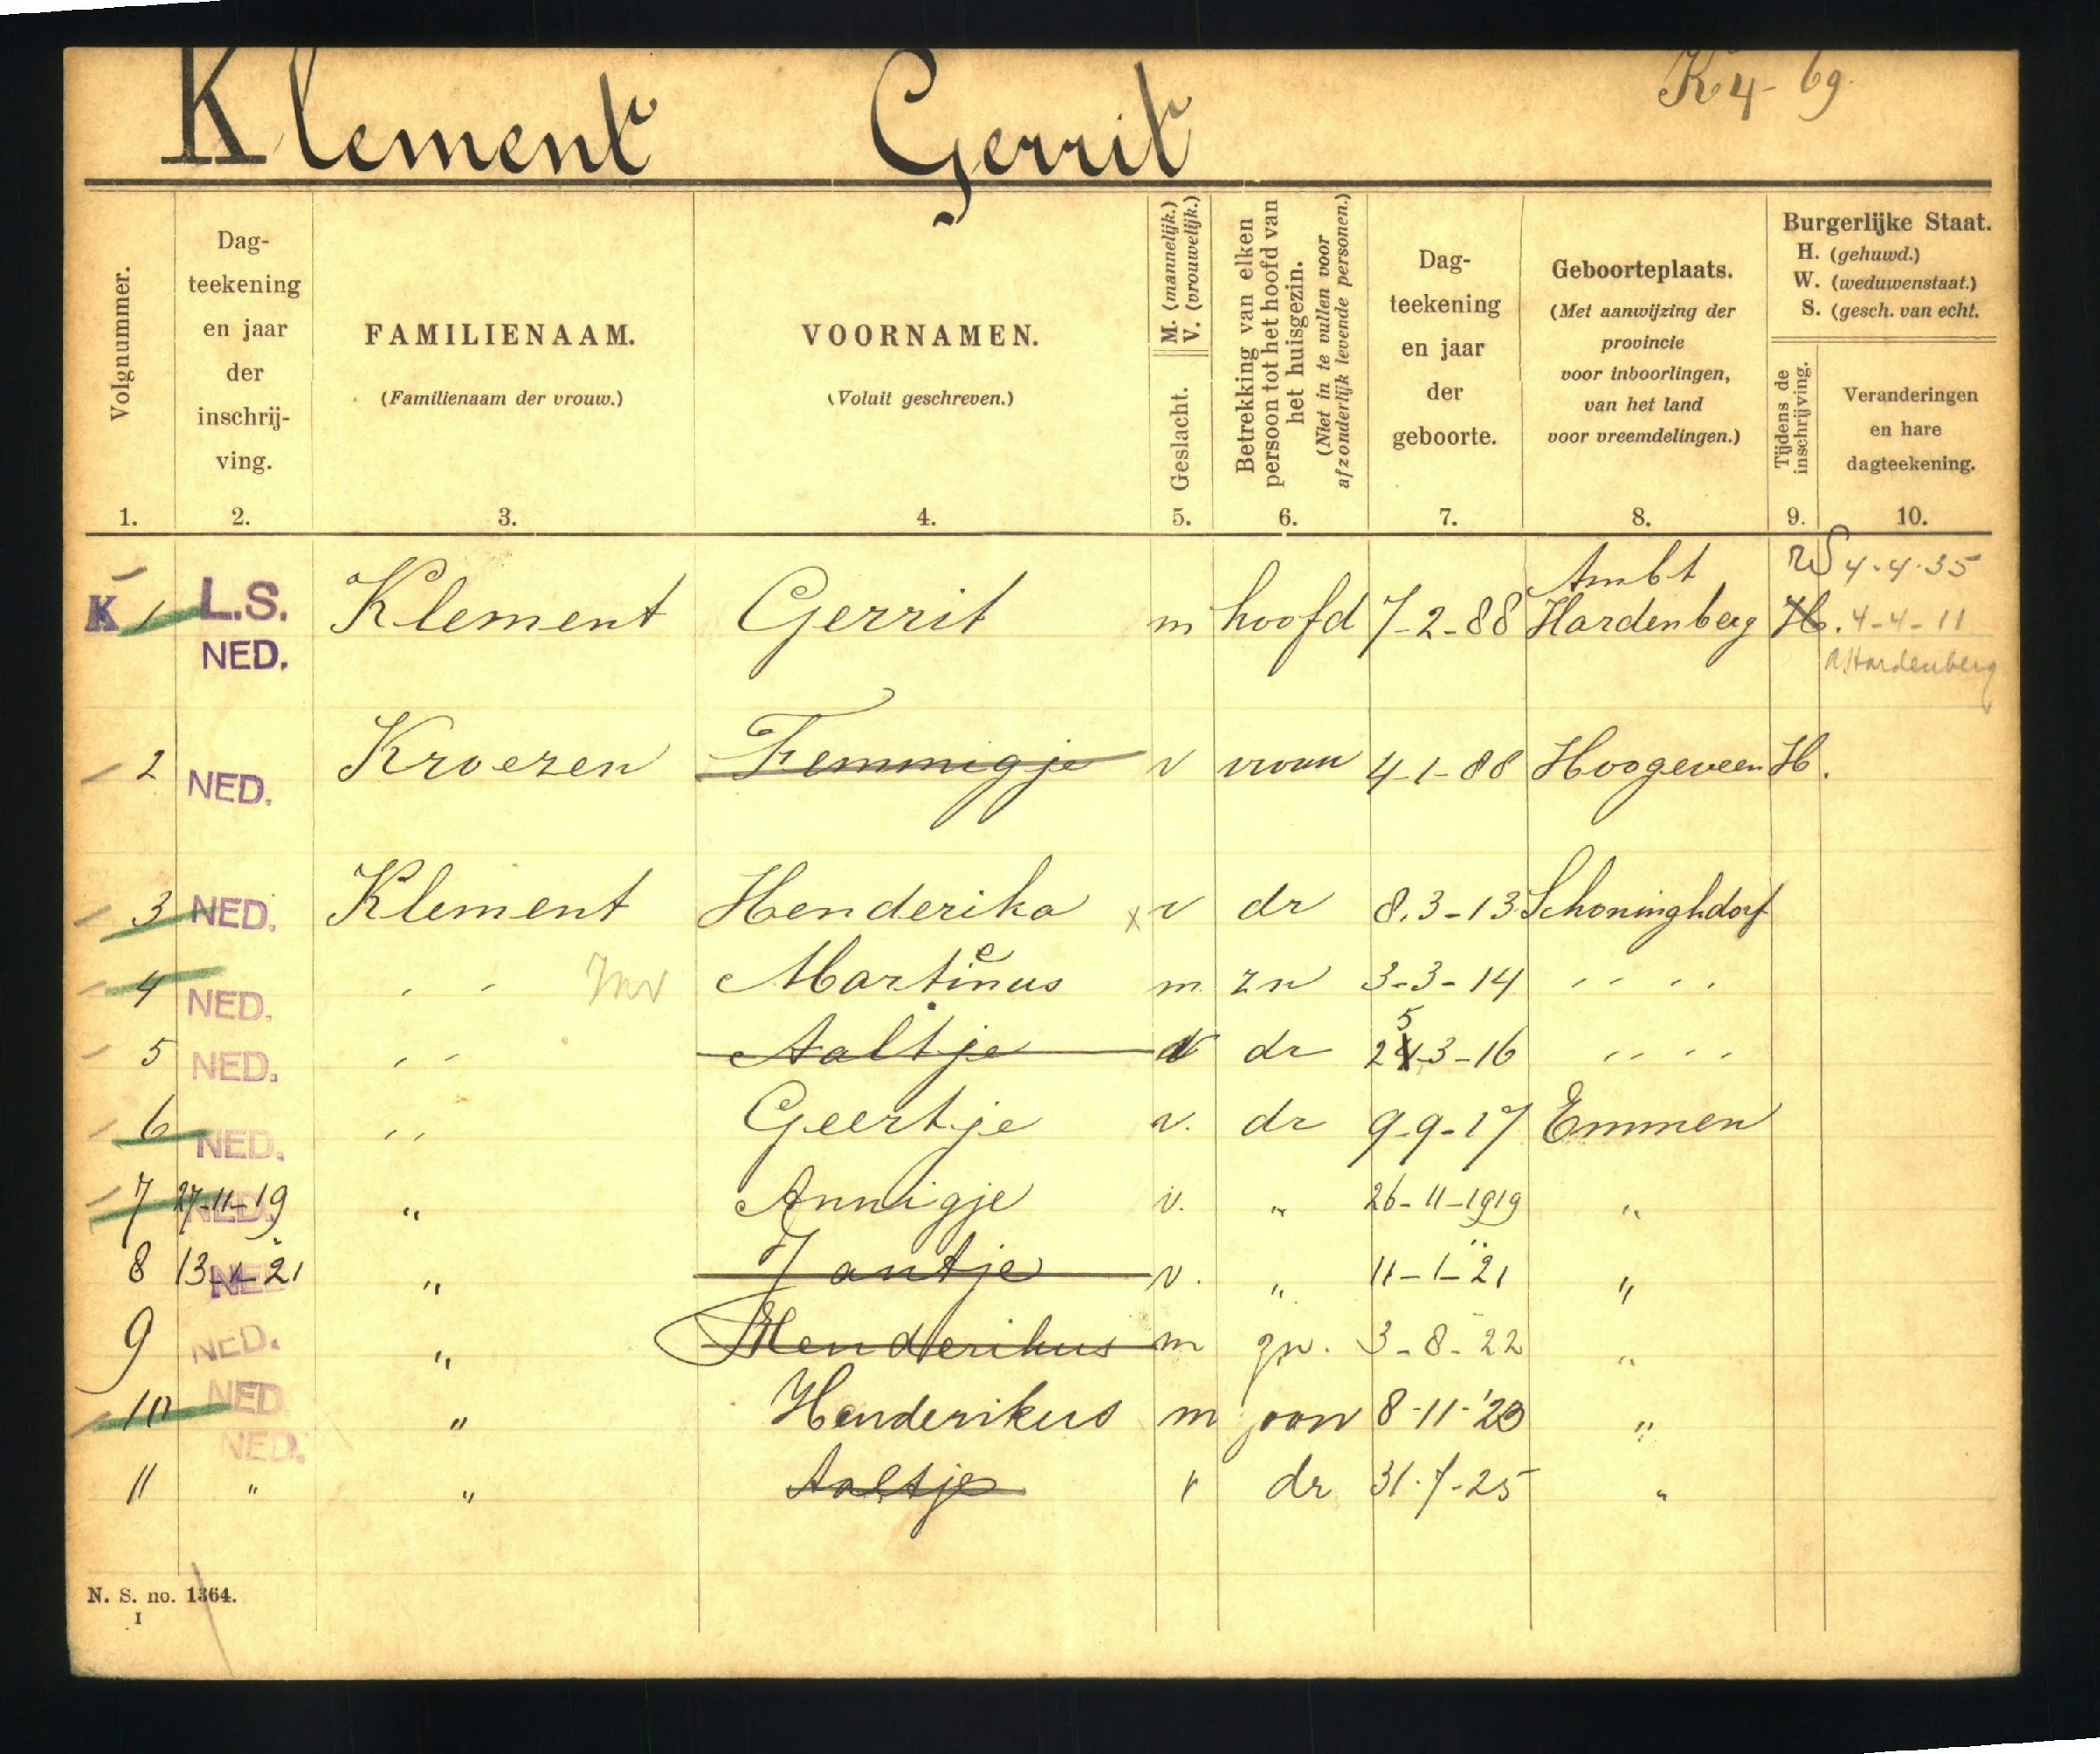 Klement Gerrit K 4 - 69.
Volgnummer.
Dag-
teekening
en jaar
der
inschrij-
ving.
FAMILIENAAM.
(Familienaam der vrouw.)
VOORNAMEN.
(Voluit geschreven.)
M. (mannelijk.)
V. (vrouwelijk.)
Geslacht.
Betrekking van elken
persoon tot het hoofd van
het huisgezin.
(Niet in te vullen voor
afzonderlijk levende personen.)
Dag-
teekening
en jaar
der
geboorte.
Geboorteplaats.
(Met aanwijzing der
provincie
voor inboorlingen,
van het land
voor vreemdelingen.)
Burgerlijke Staat.
H. (gehuwd.)
W. (weduwenstaat.)
S. (gesch. van echt.
Tijdens de
inschrijving.
Veranderingen
en hare
dagteekening.
1. 2. 3. 4. 5. 6. 7. 8. 9. 10.
Ambt 4-4-35
K 1 L.S. Klement Gerrit m hoofd 7-2-88 Hardenberg H. 4-4-11
NED. A Hardenberg
2 NED. Kroezen Femmigje v vrouw 4-1-88 Hoogeveen H.
3 NED. Klement Henderika x v dr 8.3-13 Schoninghdorf
4 NED. " " Martinus e m zn 3-3-14 " " " "
5 NED. " " Aaltje v dr 24 5-3-16 " " " "
6 NED. " " Geertje v. dr 9-9-17 Emmen
7 27-11-19 NED. " Annigje v. " 26-11-1919 "
8 13-1-21 NED " Jantje v. " 11-1-21 "
9 NED. " Henderikus m zn. 3-8-22 "
10 NED " Henderikus m zoon 8-11-'23 "
NED.
11 " " Aaltje v dr 31-7-25 "
N. S. no. 1364.
I